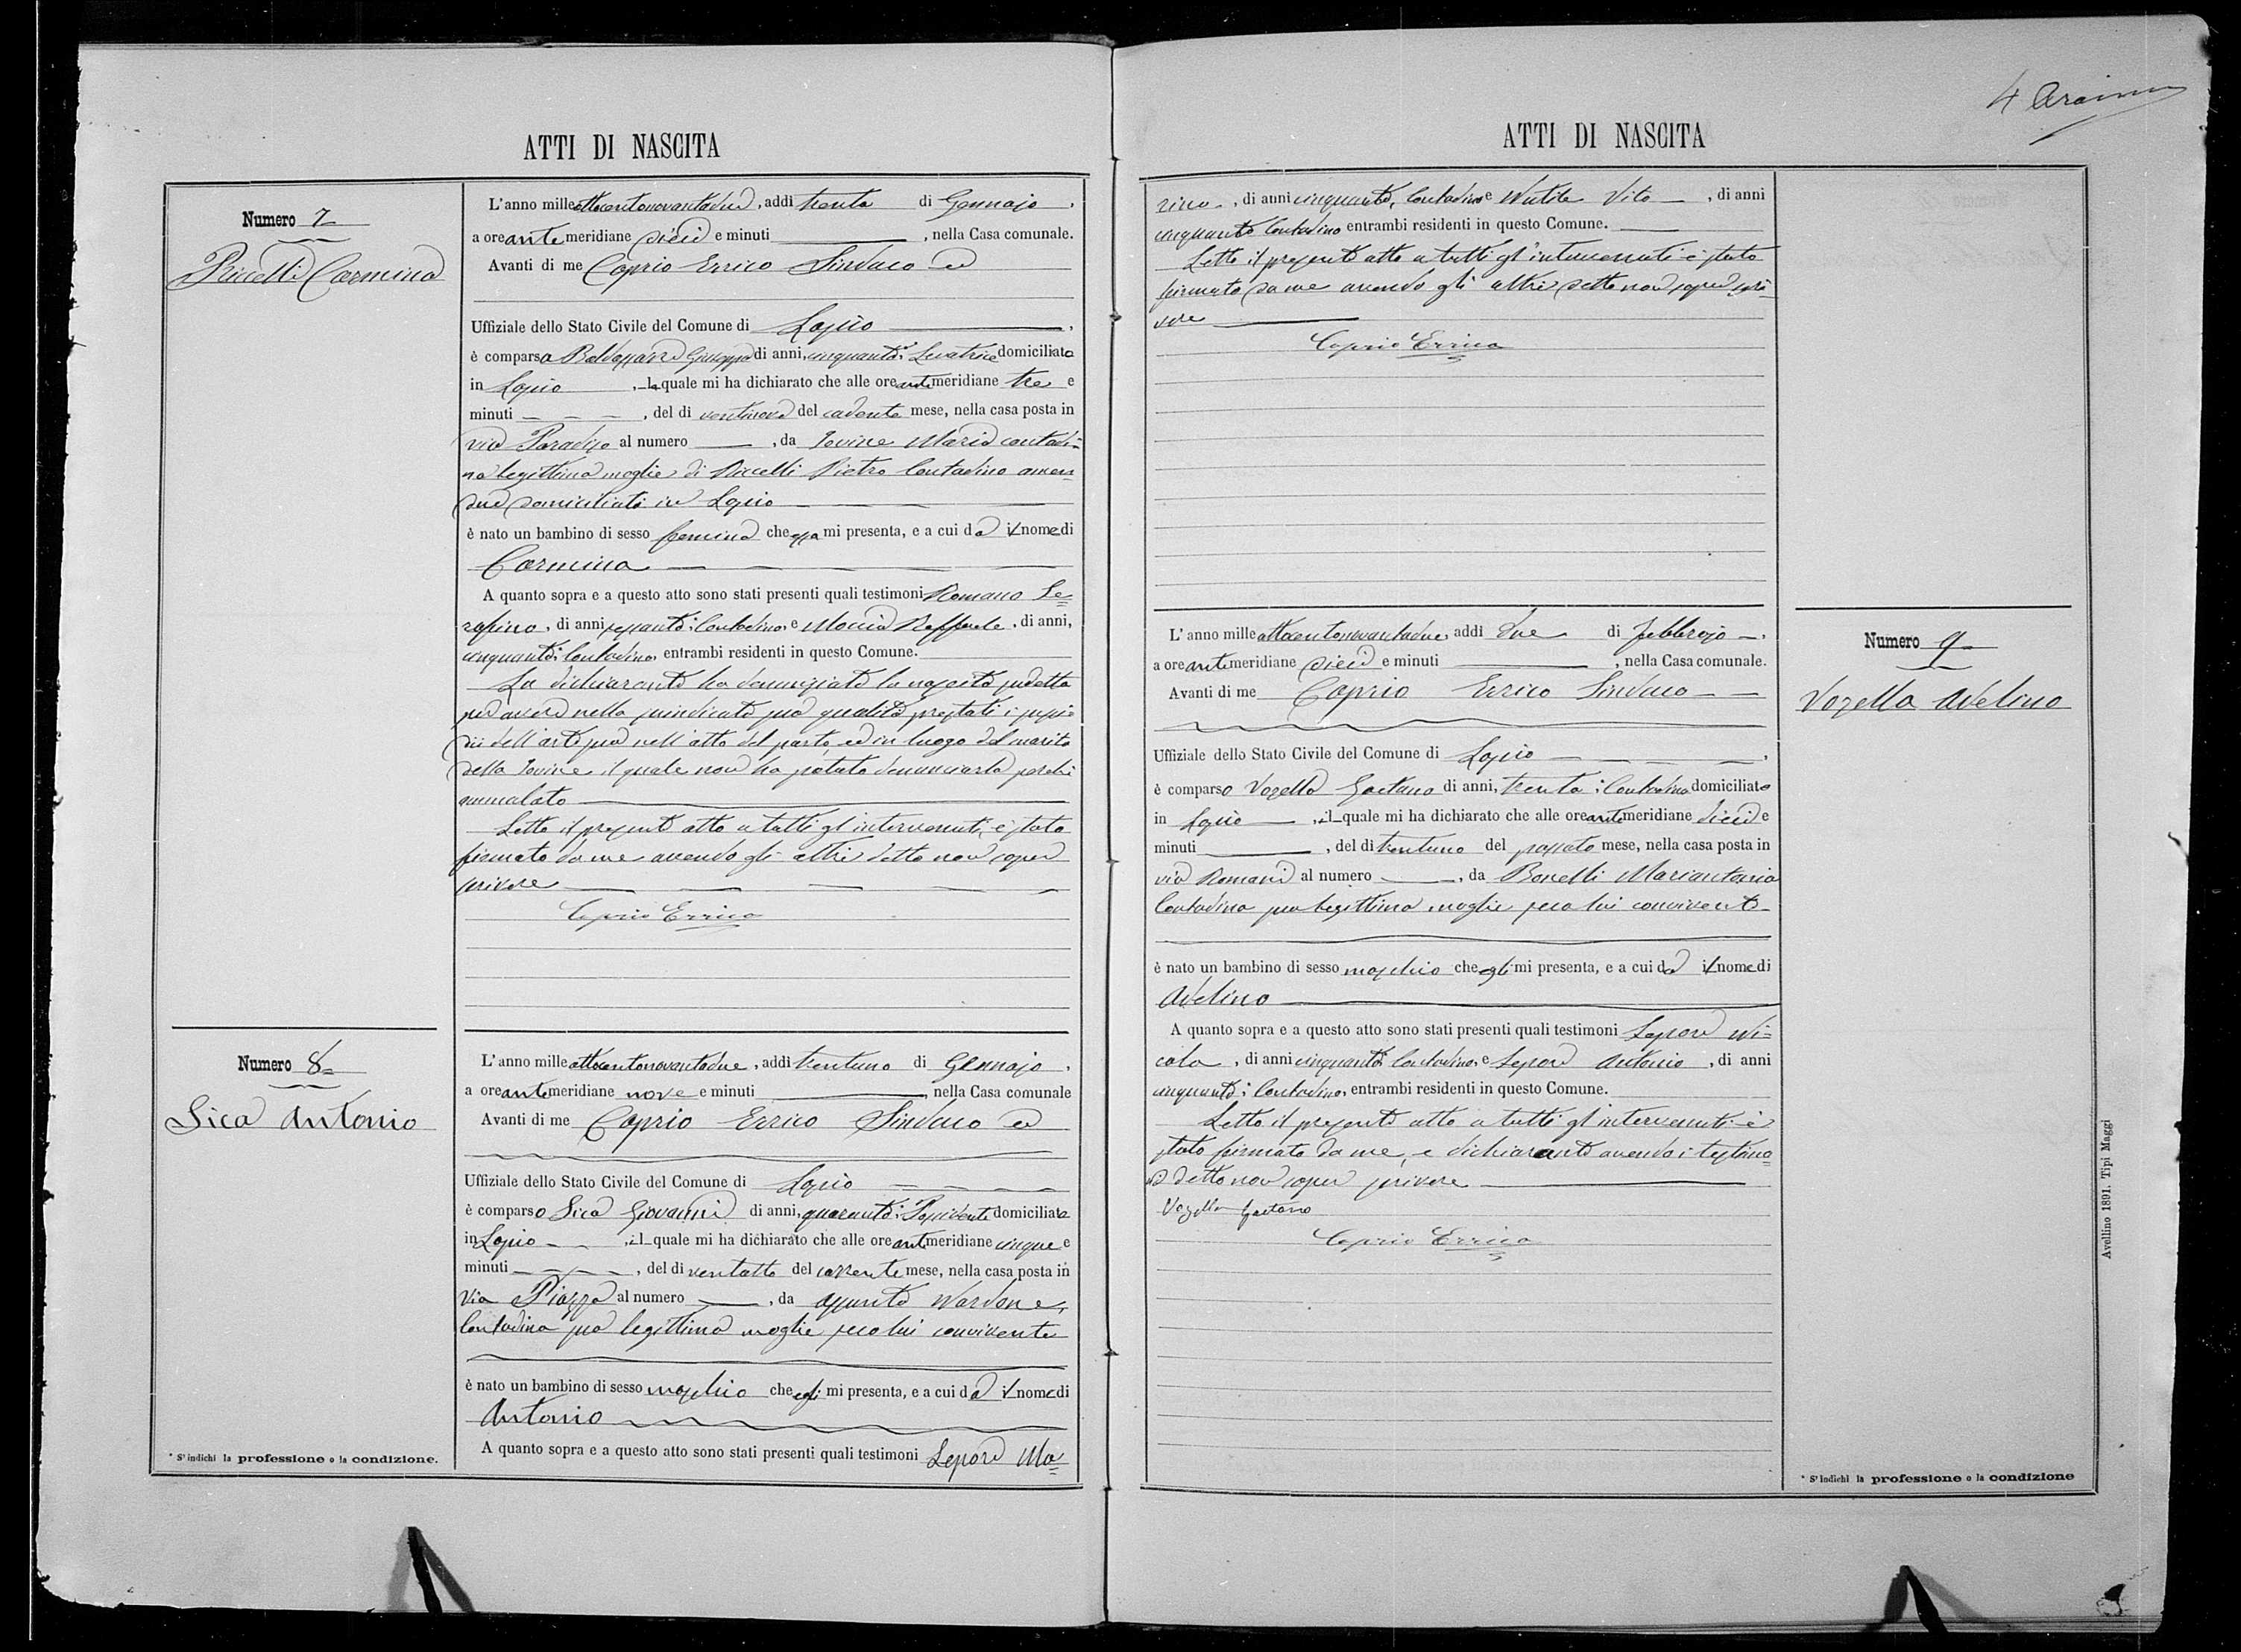 ATTI DI NASCITA
Numero 7
Riccelli Carmina
L'anno mille ottocentonovantadue, addì trenta di Gennajo,
a ore antemeridiane dieci e minuti, nella Casa comunale.
Avanti di me Caprio Errico Sindaco ed
Uffiziale dello Stato Civile del Comune di Lapio,
è comparsa Baldassarre Giuseppa di anni, cinquanta; Levatrice domiciliata
in Lapio, la quale mi ha dichiarato che alle ore antimeridiane tre e
minuti, del dì ventinove del cadente mese, nella casa posta in
via Paradiso al numero, da Iovine Maria contadi=
na legittima moglie di Riccelli Pietro Contadino amen
due domiciliati in Lapio
è nato un bambino di sesso femmina che essa mi presenta, e a cui dà il nome di
Carmina
A quanto sopra e a questo atto sono stati presenti quali testimoni Romano Se=
rafino, di anni sessanta; Contadino, e Raffaele, di anni,
cinquanta; Contadino, entrambi residenti in questo Comune.
La dichiarante ha denunziato la nascita sudetta
per avere nella suindicata sua qualità prestati i
dell'arte sua nell'atto del parto, ed in luogo del marito
della Iovine il quale non ha potuto denunciarla perchè
ammalato
Letto il presente atto a tutti gl'intervenuti, è stato
firmato da me avendo gli altri detto non saper
scrivere
Caprio Errico
Numero 8=
Sica Antonio
L'anno mille ottocentonovantadue, addì trentuno di Gennajo,
a ore antemeridiane nove e minuti, nella Casa comunale
Avanti di me Caprio Errico Sindaco ed
Uffiziale dello Stato Civile del Comune di Lapio
è comparso Sica Giovanni di anni, quaranta; Possidente domiciliato
in Lapio, il quale mi ha dichiarato che alle ore antmeridiane cinque e
minuti, del dì ventotto del corrente mese, nella casa posta in
via Piazza al numero, da Assunta Nardone,
Contadina sua legittima moglie seco lui convivente
è nato un bambino di sesso maschio che egli mi presenta, e a cui dà il nome di
Antonio
A quanto sopra e a questo atto sono stati presenti quali testimoni Lepore Ma=
* S'indichi la professione o la condizione.
4 
ATTI DI NASCITA
rino, di anni cinquanta, Contadino e Vito, di anni
cinquanta Contadino entrambi residenti in questo Comune.
Letto il presente atto a tutti gl'intervenuti è stato
firmato da me avendo gli altri detto non saper scri=
vere
Caprio Errico
Numero 9=
Vozella Avelino
L'anno mille ottocentonovantadue, addì due di Febbrajo,
a ore antimeridiane dieci e minuti, nella Casa comunale.
Avanti di me Caprio Errico Sindaco
Uffiziale dello Stato Civile del Comune di Lapio,
è comparso Vozella Gaetano di anni, trenta; Contadino domiciliato
in Lapio, il quale mi ha dichiarato che alle ore antimeridiane dieci e
minuti, del dì trentuno del passato mese, nella casa posta in
via Romani al numero, da Bonelli Mariantonia
Contadina sua legittima moglie seco lui convivente
è nato un bambino di sesso maschio che egli mi presenta, e a cui dà il nome di
Avelino
A quanto sopra e a questo atto sono stati presenti quali testimoni Lepore Ni=
cola, di anni cinquanta Contadino, e Lepore Antonio, di anni
cinquanta; Contadino, entrambi residenti in questo Comune.
Letto il presente atto a tutti gl'intervenuti è
stato firmato da me, e dichiarante avendo i testimo=
nj detto non saper scrivere
Vozella Gaetano
Caprio Errico
* S'indichi la professione o la condizione
Avellino 1891. Tipi Maggi